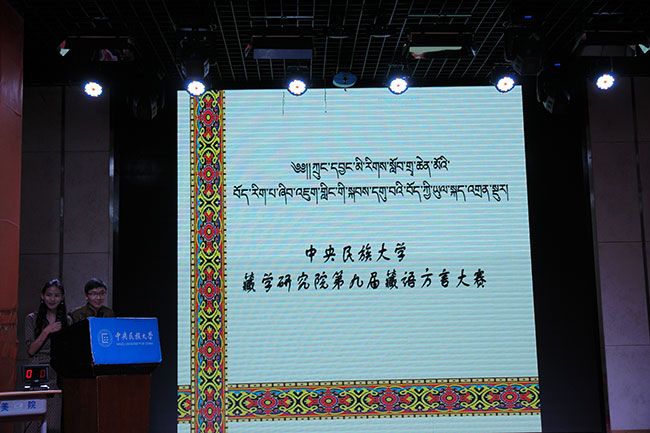 ༄༅།། ཀྲུང་དབྱང་མི་རིགས་སློབ་གྲྭ་ཆེན་མོའི་
བོད་རིག་པ་ཞིབ་འཇུག་གླིང་གི་སྐབས་དགུ་བའི་བོད་ཀྱི་ཡུལ་སྐད་འགྲན་སྡུར།
中央民族大学
藏学研究院第九届藏语方言大赛
中央民族大学
美 院